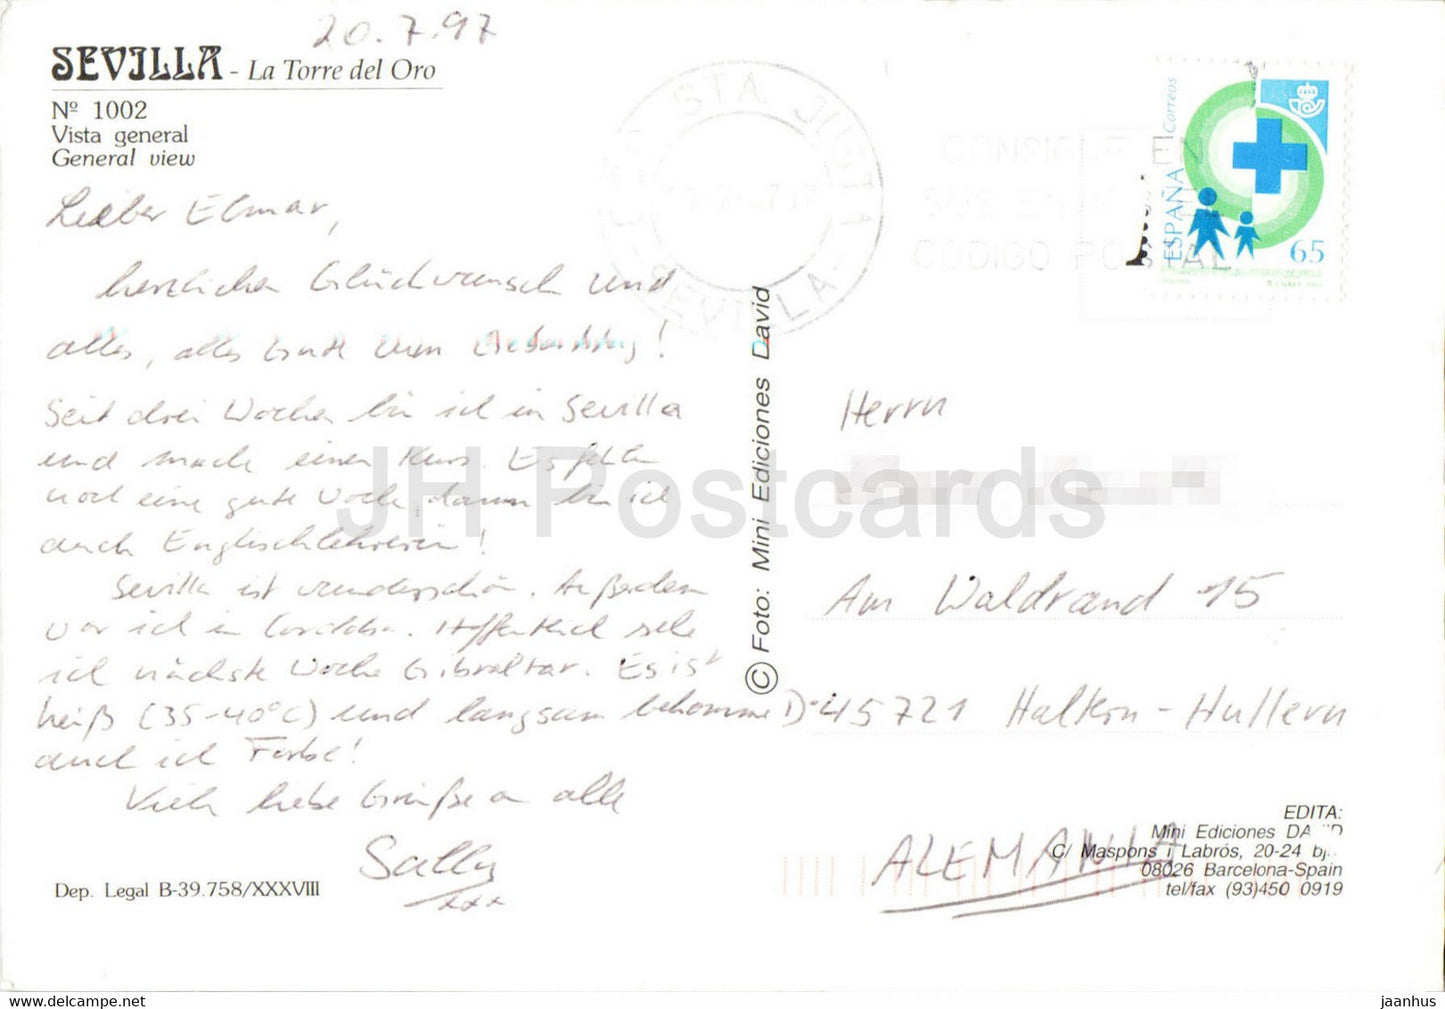 20.7.97
SEVILLA - La Torre del Oro
Nº 1002
Vista general
General view
Lieber Elmar,
herzlichen Glückwunsch und
alles, alles Gute zum Geburtstag!
Seit drei Wochen bin ich in Sevilla
und mache einen Kurs. Es fehlt
noch eine gute Woche, dann bin ich
auch Englischlehrerin!
Sevilla ist wunderschön. Außerdem
war ich in Cordoba. Hoffentlich sehe
ich nächste Woche Gibraltar. Es ist
heiß (35-40°C) und langsam bekomme
auch ich Farbe!
Viele liebe Grüße an alle
Sally
xxx
Dep. Legal B-39.758/XXXVIII
© Foto: Mini Ediciones David
STA. JUSTA
SEVILLA
CONSIGNE EN
SUS
CODIGO POSTAL
Correos
ESPAÑA
65
Herrn
Am Waldrand 15
D-45721 Haltern-Hullern
ALEMANIA
EDITA:
Mini Ediciones
C/ Maspons i Labrós, 20-24
08026 Barcelona-Spain
tel/fax (93)450 0919
JH Postcards
https://www.delcampe.net
jaanhus